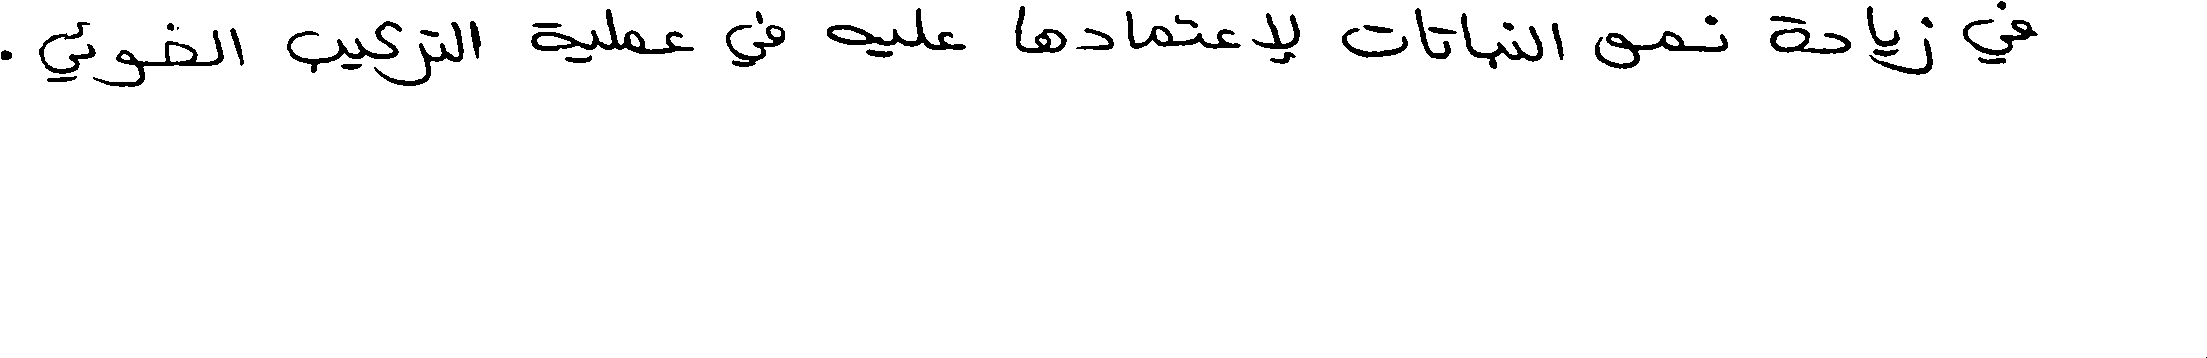 في زيادة نمو النباتات لإعتمادها عليه في عملية التركيب الضوئي .